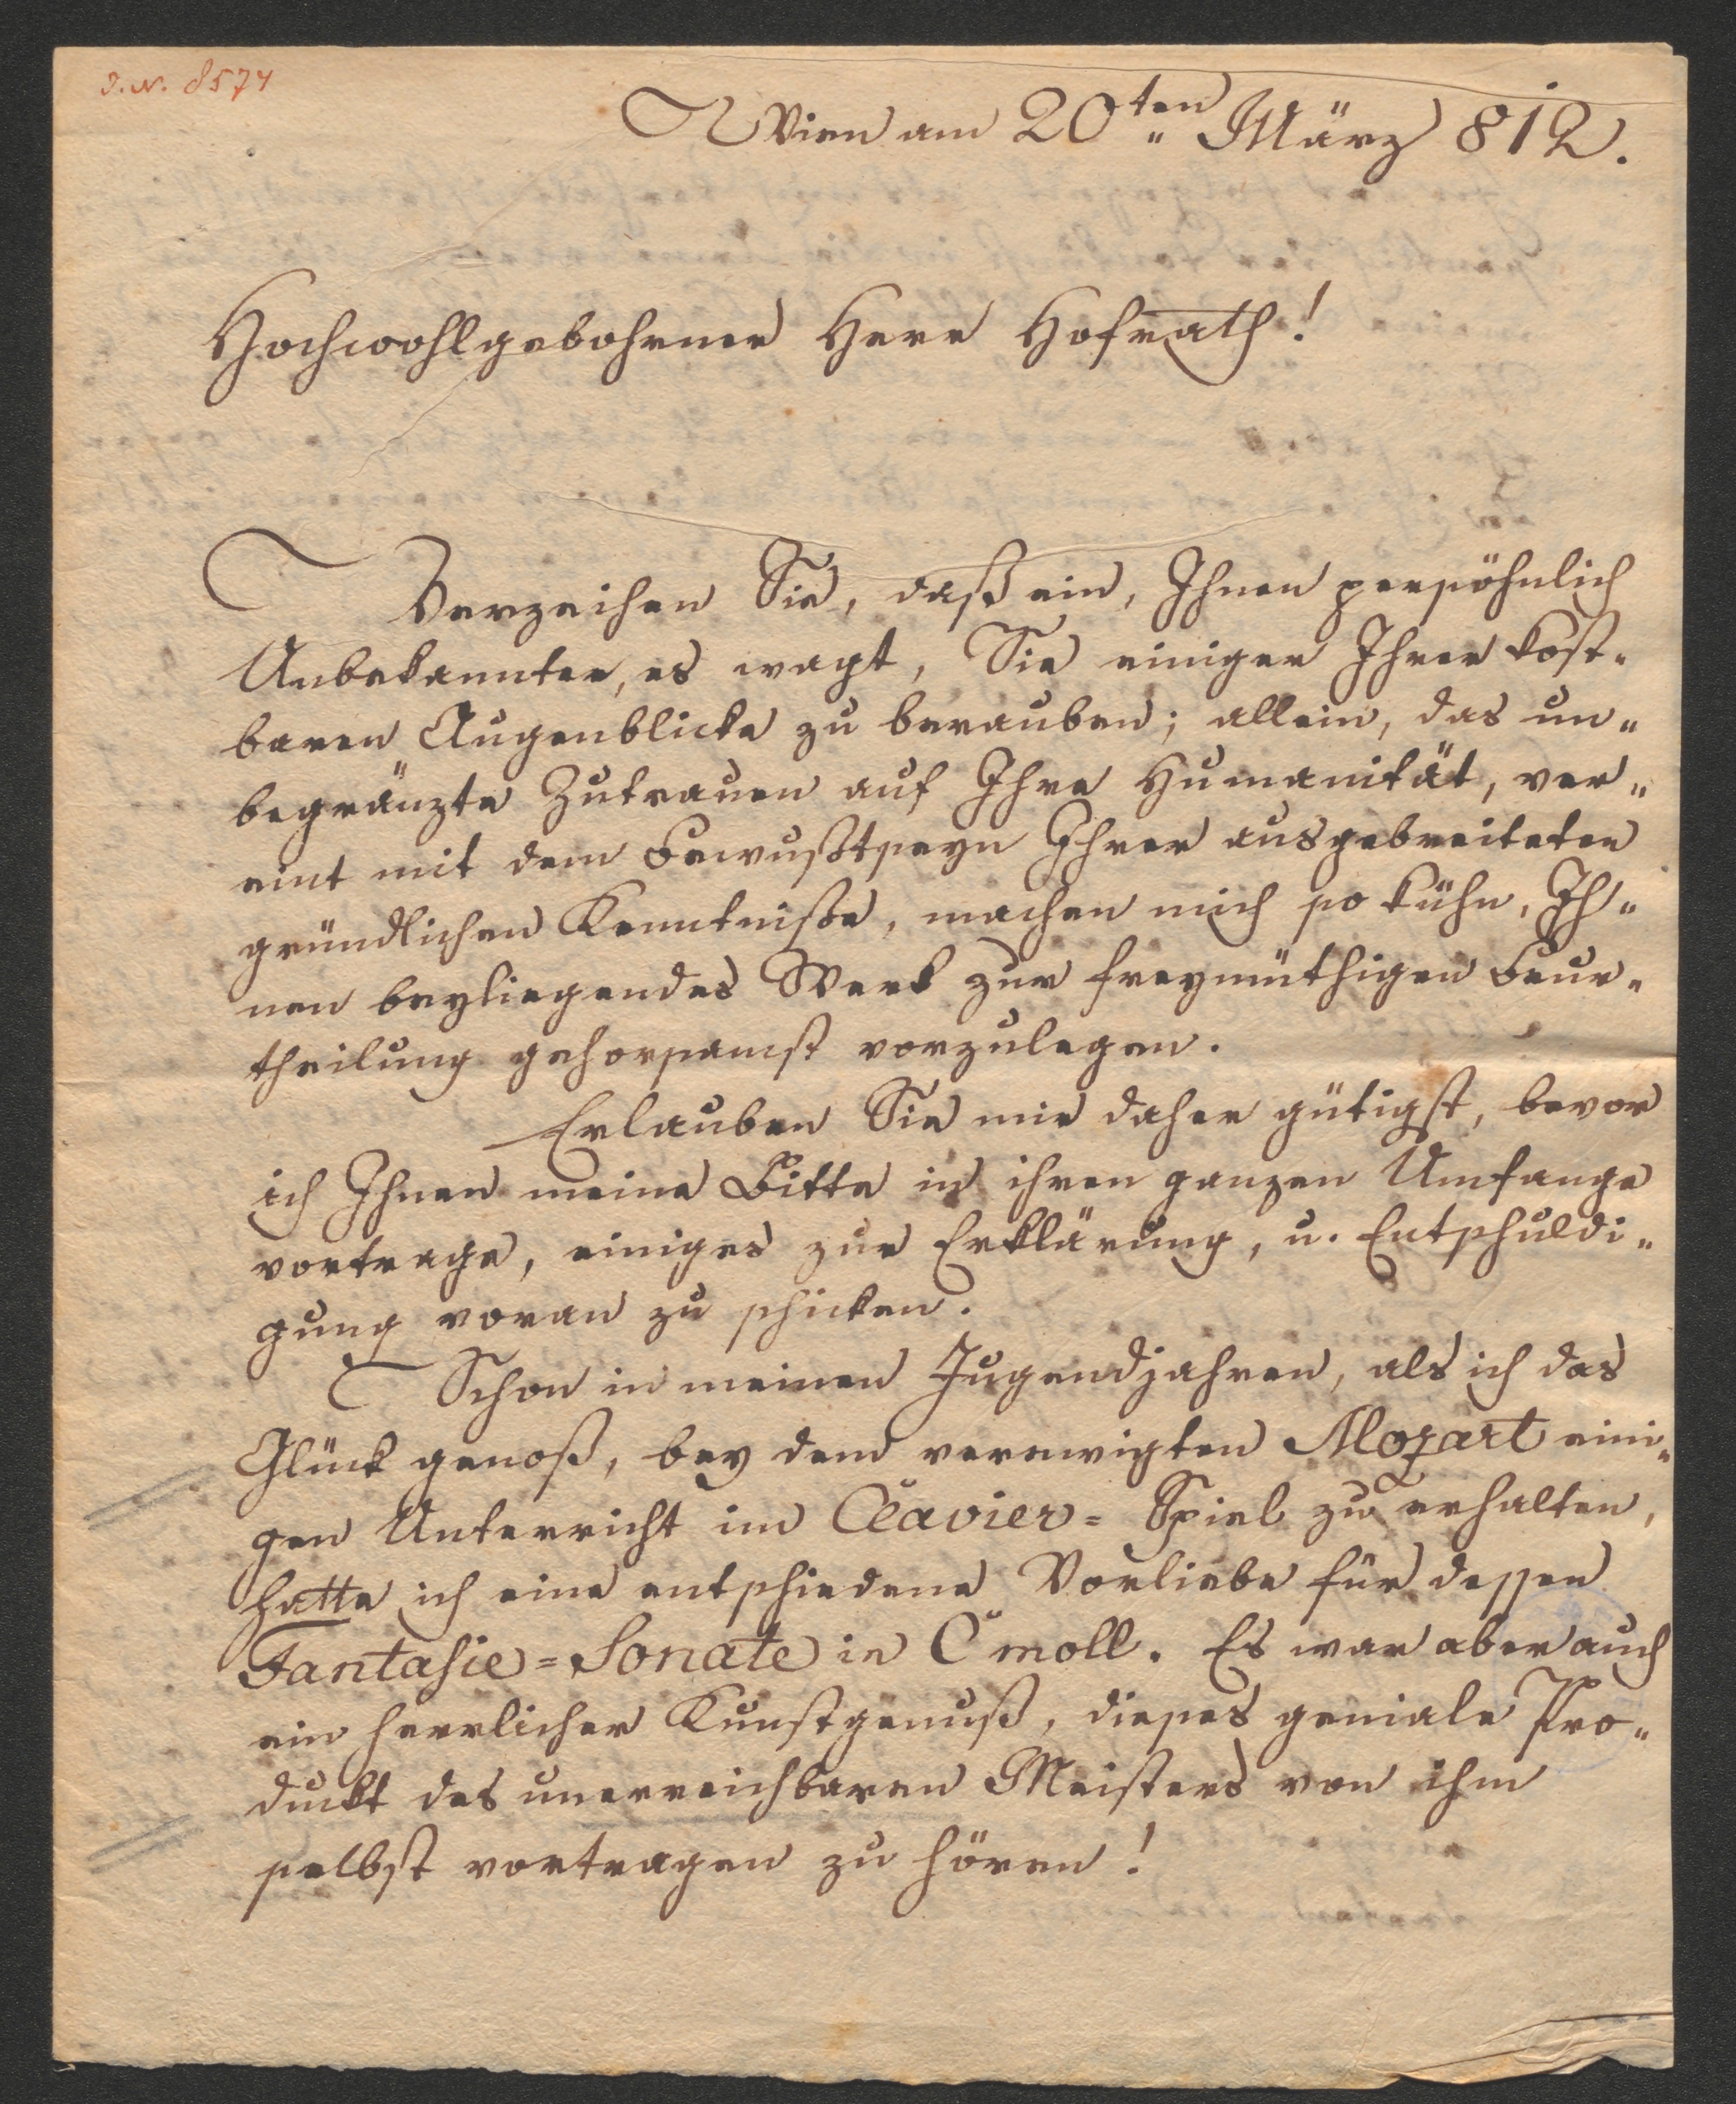 J. N. 8574
Wien am 20ten März 812.
Hochwohlgebohrner Herr Hofrath!
Verzeihen Sie, daß ein, Ihnen persöhnlich
Unbekannter, es wagt, Sie einiger Ihrer kost-
baren Augenblicke zu berauben; allein, das un-
begränzte Zutrauen auf Ihre Humanität, ver-
eint mit dem Bewußtseyn Ihrer ausgebreiteten
gründlichen Kenntniße, machen mich so kühn, Ih-
nen beyliegendes Werk zur freymüthigen Beur-
theilung gehorsamst vorzulegen.
Erlauben Sie mir daher gütigst, bevor
ich Ihnen meine Bitte in ihren ganzen Umfange
vortrage, einiges zur Erklärung, u. Entschuldi-
gung voran zu schicken.
Schon in meinen Jugendjahren, als ich das
Glück genoß, bey dem verewigten Mozart eini-
gen Unterricht im Clavier= Spiel zu erhalten,
hatte ich eine entschiedene Vorliebe für dessen
Fantasie=Sonate in C moll. Es war aber auch
ein herrlicher Kunstgenuß, dieses geniale Pro-
duckt des unerreichbaren Meisters von ihm
selbst vortragen zu hören!